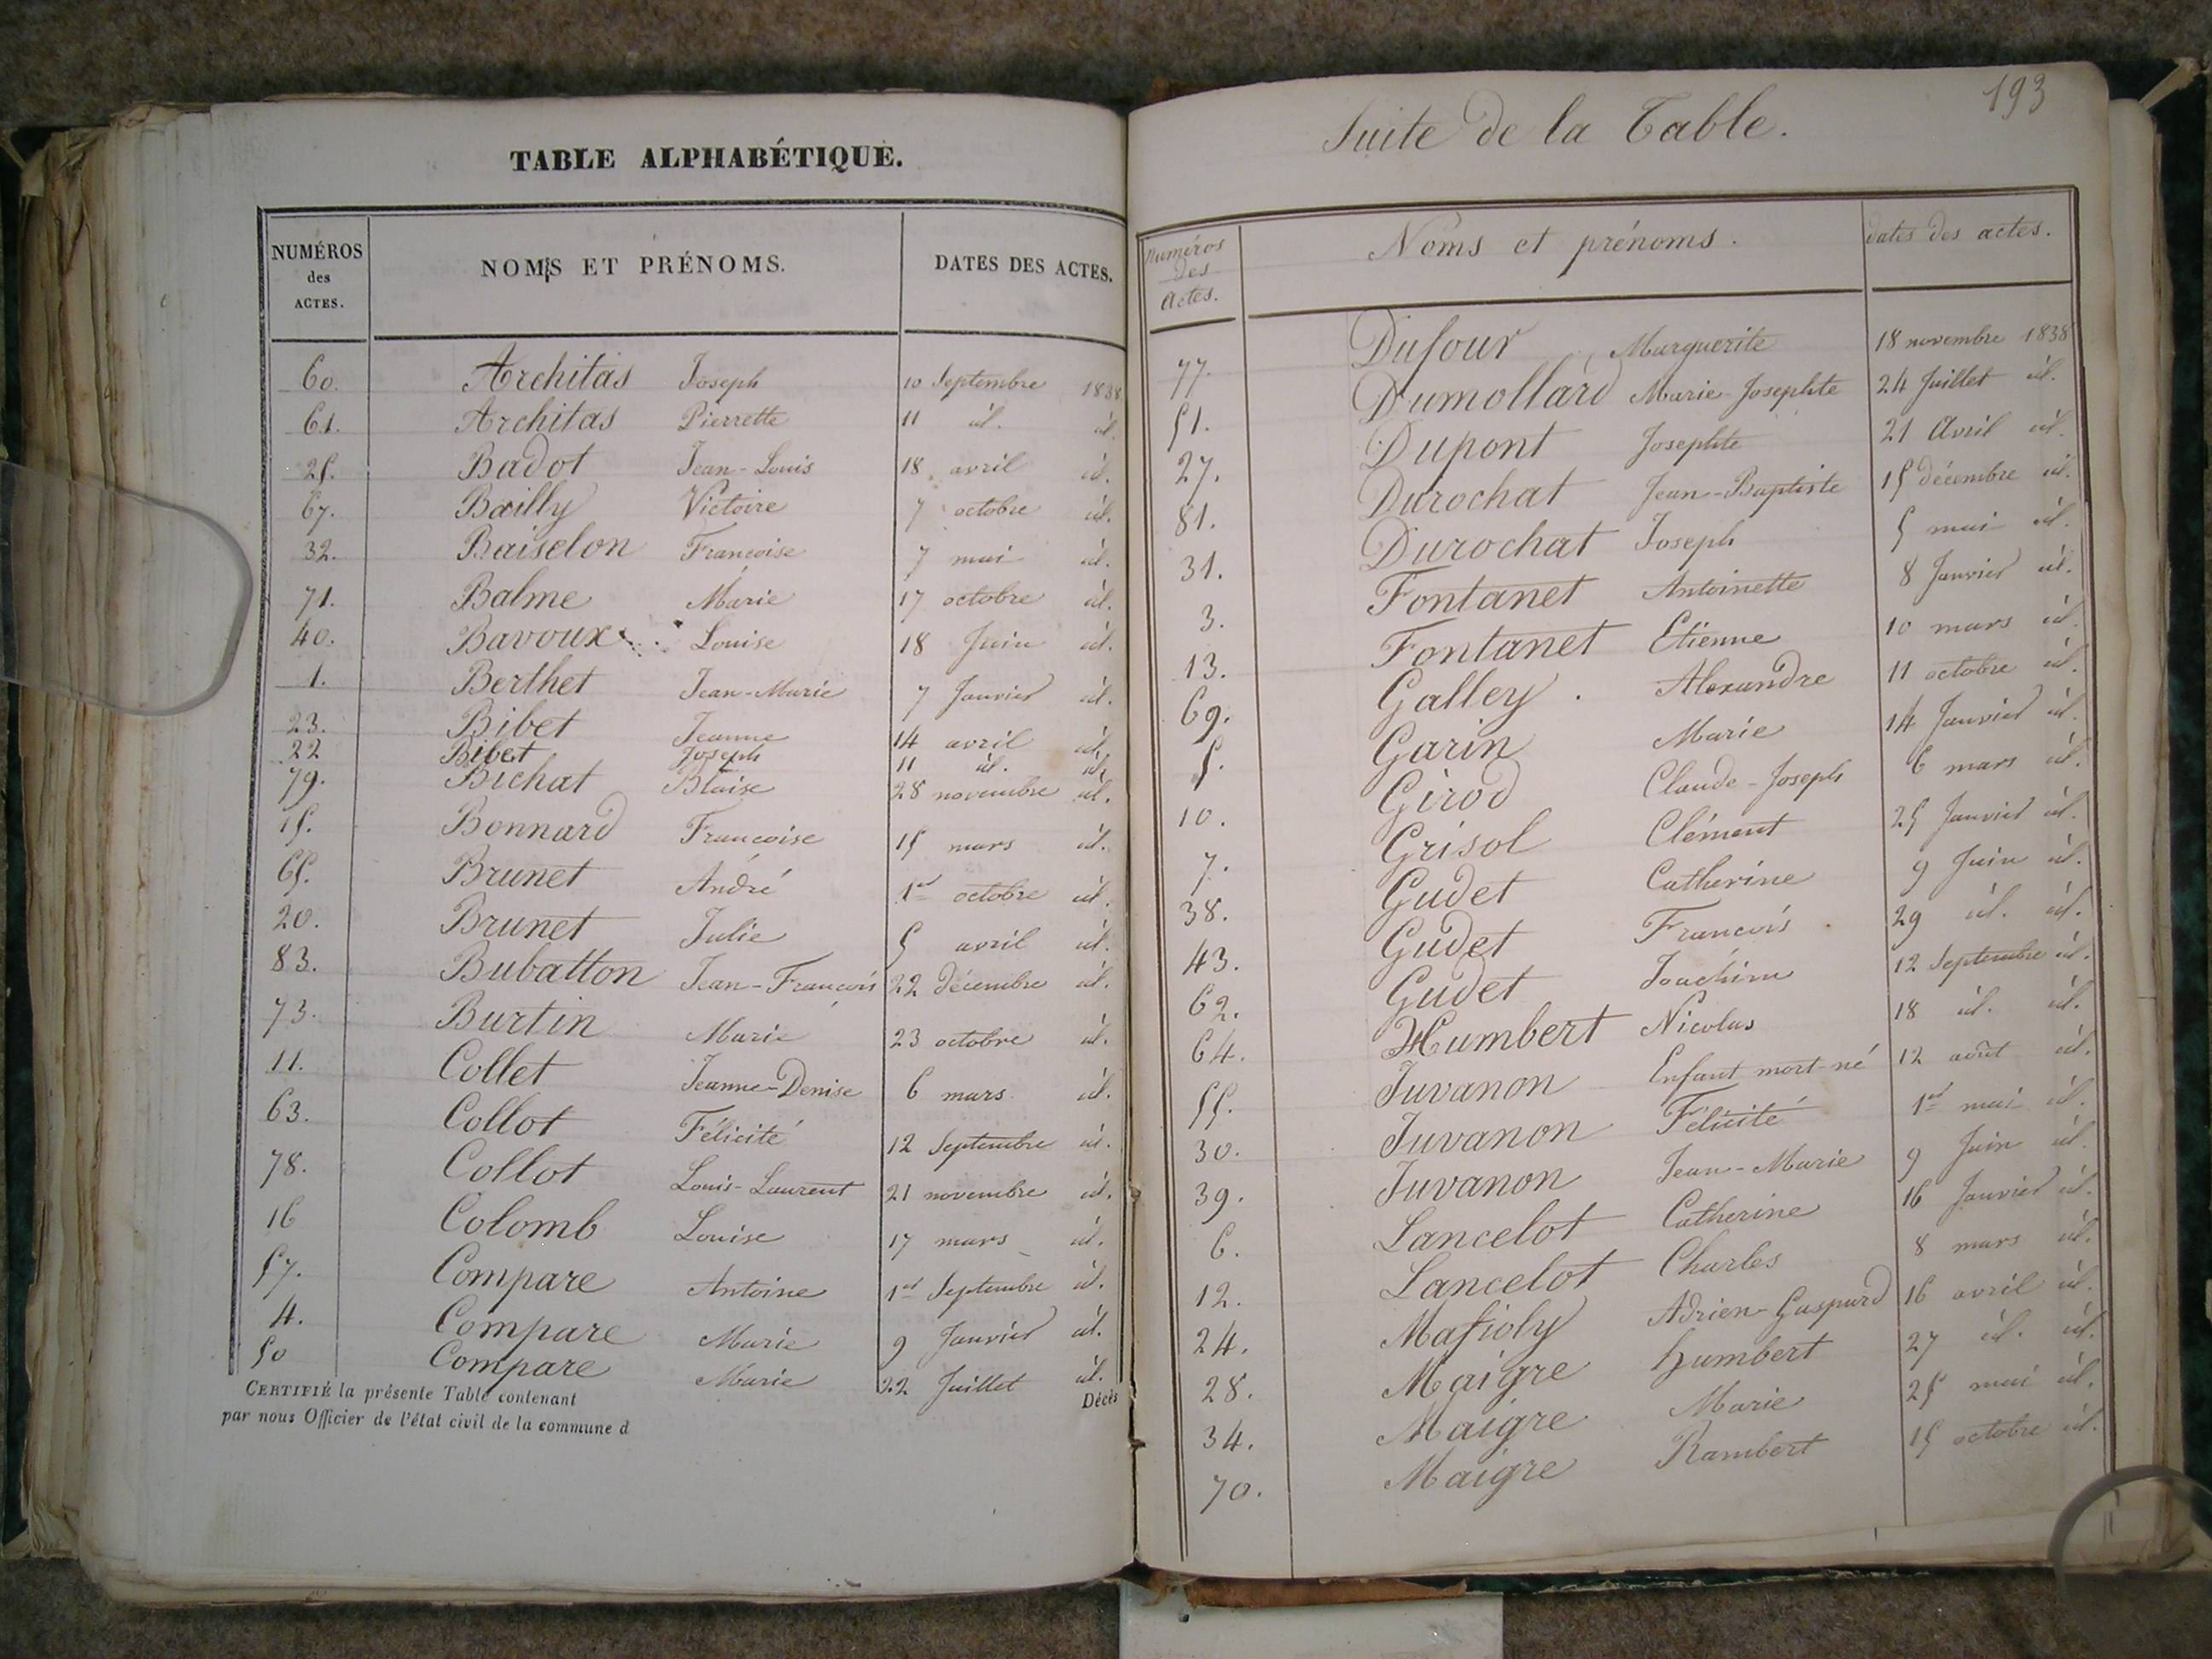 TABLE ALPHABÉTIQUE.
NUMÉROS des ACTES. NOMS ET PRÉNOMS. DATES DES ACTES.
60. Architas Joseph 10 Septembre 1838
61. Architas Pierrette 11 id. id.
25. Badot Jean-Louis 18 avril id.
67. Bailly Victoire 7 octobre id.
32. Baiselon Francoise 7 mai id.
71. Balme Marie 17 octobre id.
40. Bavoux Louise 18 Juin id.
1. Berthet Jean-Marie 7 Janvier id.
23. Bibet Jeanne 14 avril id.
22 Bibet Joseph 11 id. id.
79. Bichat Blaise 28 novembre id.
15. Bonnard Francoise 15 mars id.
65. Brunet André 1er octobre id.
20. Brunet Julie 5 avril id.
83. Bubatton Jean-François 22 décembre id.
73. Burtin Marie 23 octobre id.
11. Collet Jeanne-Denise 6 mars id.
63. Collot Félicité 12 Septembre id.
78. Collot Louis-Laurent 21 novembre id.
16 Colomb Louise 17 mars id.
57. Compare Antoine 1er Septembre id.
4. Compare Marie 9 Janvier id.
50 Compare Marie 22 Juillet id.
Décès
CERTIFIÉ la présente Table contenant
par nous Officier de l'état civil de la commune d
193
Suite de la Table.
Numéros des Actes. Noms et prénoms. dates des actes.
77. Dufour Marguerite 18 novembre 1838
51. Dumollard Marie-Josephte 24 Juillet id.
27. Dupont Josephte 21 Avril id.
81. Durochat Jean-Baptiste 15 décembre id.
31. Durochat Joseph 5 mai id.
3. Fontanet Antoinette 8 Janvier id.
13. Fontanet Etienne 10 mars id.
69. Galley. Alexandre 11 octobre id.
5. Garin Marie 14 Janvier id.
10. Girod Claude-Joseph 6 mars id.
7. Grisol Clément 25 Janvier id.
38. Gudet Catherine 9 Juin id.
43. Gudet François 29 id. id.
62. Gudet Joachim 12 Septembre id.
64. Humbert Nicolas 18 id. id.
55. Juvanon Enfant mort-né 12 août id.
30. Juvanon Félicité 1er mai id.
39. Juvanon Jean-Marie 9 Juin id.
6. Lancelot Catherine 16 Janvier id.
12. Lancelot Charles 8 mars id.
24. Mafioly Adrien-Gaspard 16 avril id.
28. Maigre humbert 27 id. id.
34. Maigre Marie 25 mai id.
70. Maigre Rambert 15 octobre id.